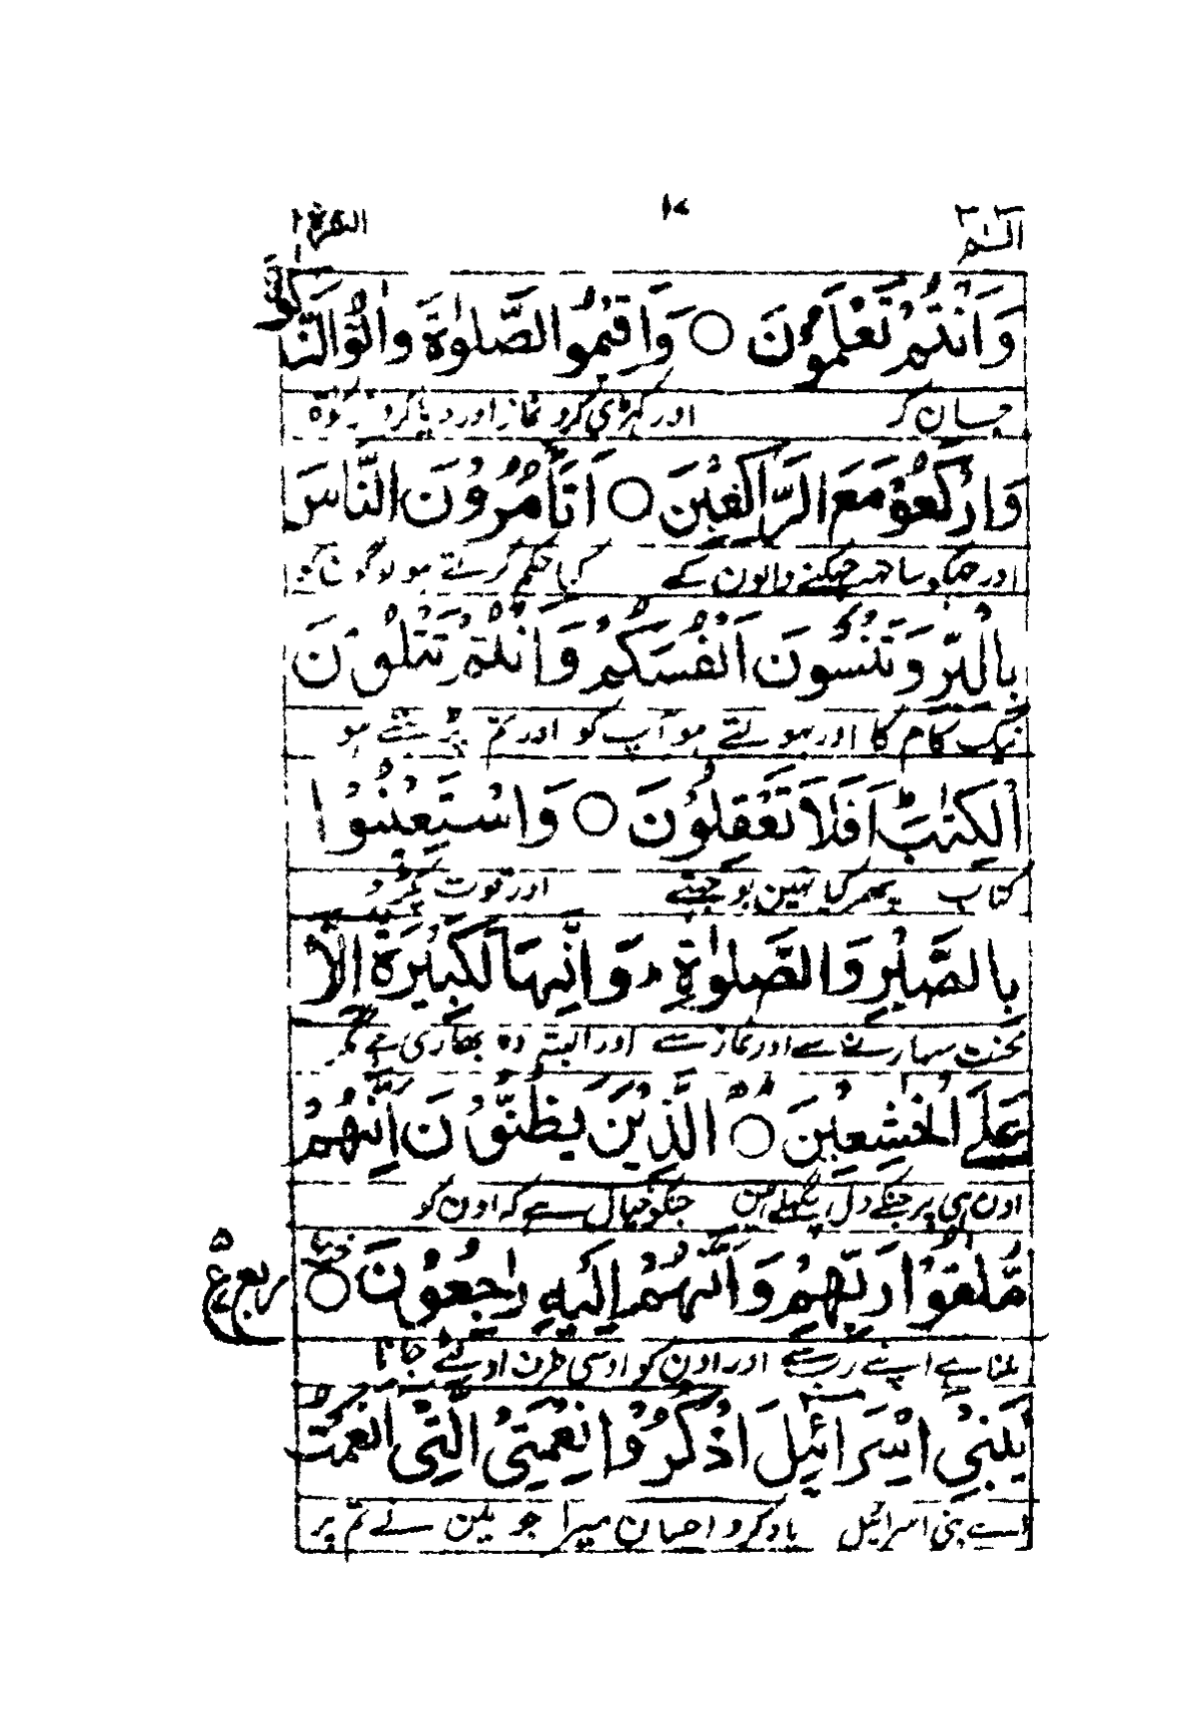 الٓمّٓ ١٠ البقرة ٢
وَاَنْتُمْ تَعْلَمُوْنَ ○ وَاَقِيْمُوا الصَّلٰوةَ وَاٰتُوا الزَّكٰوةَ
جان کر اور کہڑی کرو نماز اور دیا کرو زکوٰة
وَارْكَعُوْا مَعَ الرَّاكِعِيْنَ ○ اَتَاْمُرُوْنَ النَّاسَ
اور جھکو ساتھہ جھکنے والون کے کیا حکم کرتے ہو لوگون کو
بِالْبِرِّ وَتَنْسَوْنَ اَنْفُسَكُمْ وَاَنْتُمْ تَتْلُوْنَ
نیک کام کا اور بھولتے ہو آپ کو اور تم پڑہتے ہو
الْكِتٰبَ ؕ اَفَلَا تَعْقِلُوْنَ ○ وَاسْتَعِيْنُوْا
کتاب پھر کیا نہین بوجھتے اور قوت پکڑو
بِالصَّبْرِ وَالصَّلٰوةِ ؕ وَاِنَّهَا لَكَبِيْرَةٌ اِلَّا
محنت سہارنے سے اور نماز سے اور البتہ وہ بھاری ہے مگر
عَلَى الْخٰشِعِيْنَ ○ الَّذِيْنَ يَظُنُّوْنَ اَنَّهُمْ
اون ہی پر جنکے دل پگھلے ہین جنکو خیال ہے کہ اون کو
مُّلٰقُوْا رَبِّهِمْ وَاَنَّهُمْ اِلَيْهِ رٰجِعُوْنَ ○
ربع ع ٥
ملنا ہے اپنے رب سے اور اون کو اوسی طرف اولٹے جانا
يٰبَنِيْٓ اِسْرَآءِيْلَ اذْكُرُوْا نِعْمَتِيَ الَّتِيْٓ اَنْعَمْتُ
اے بنی اسرائیل یاد کرو احسان میرا جو مین نے تم پر